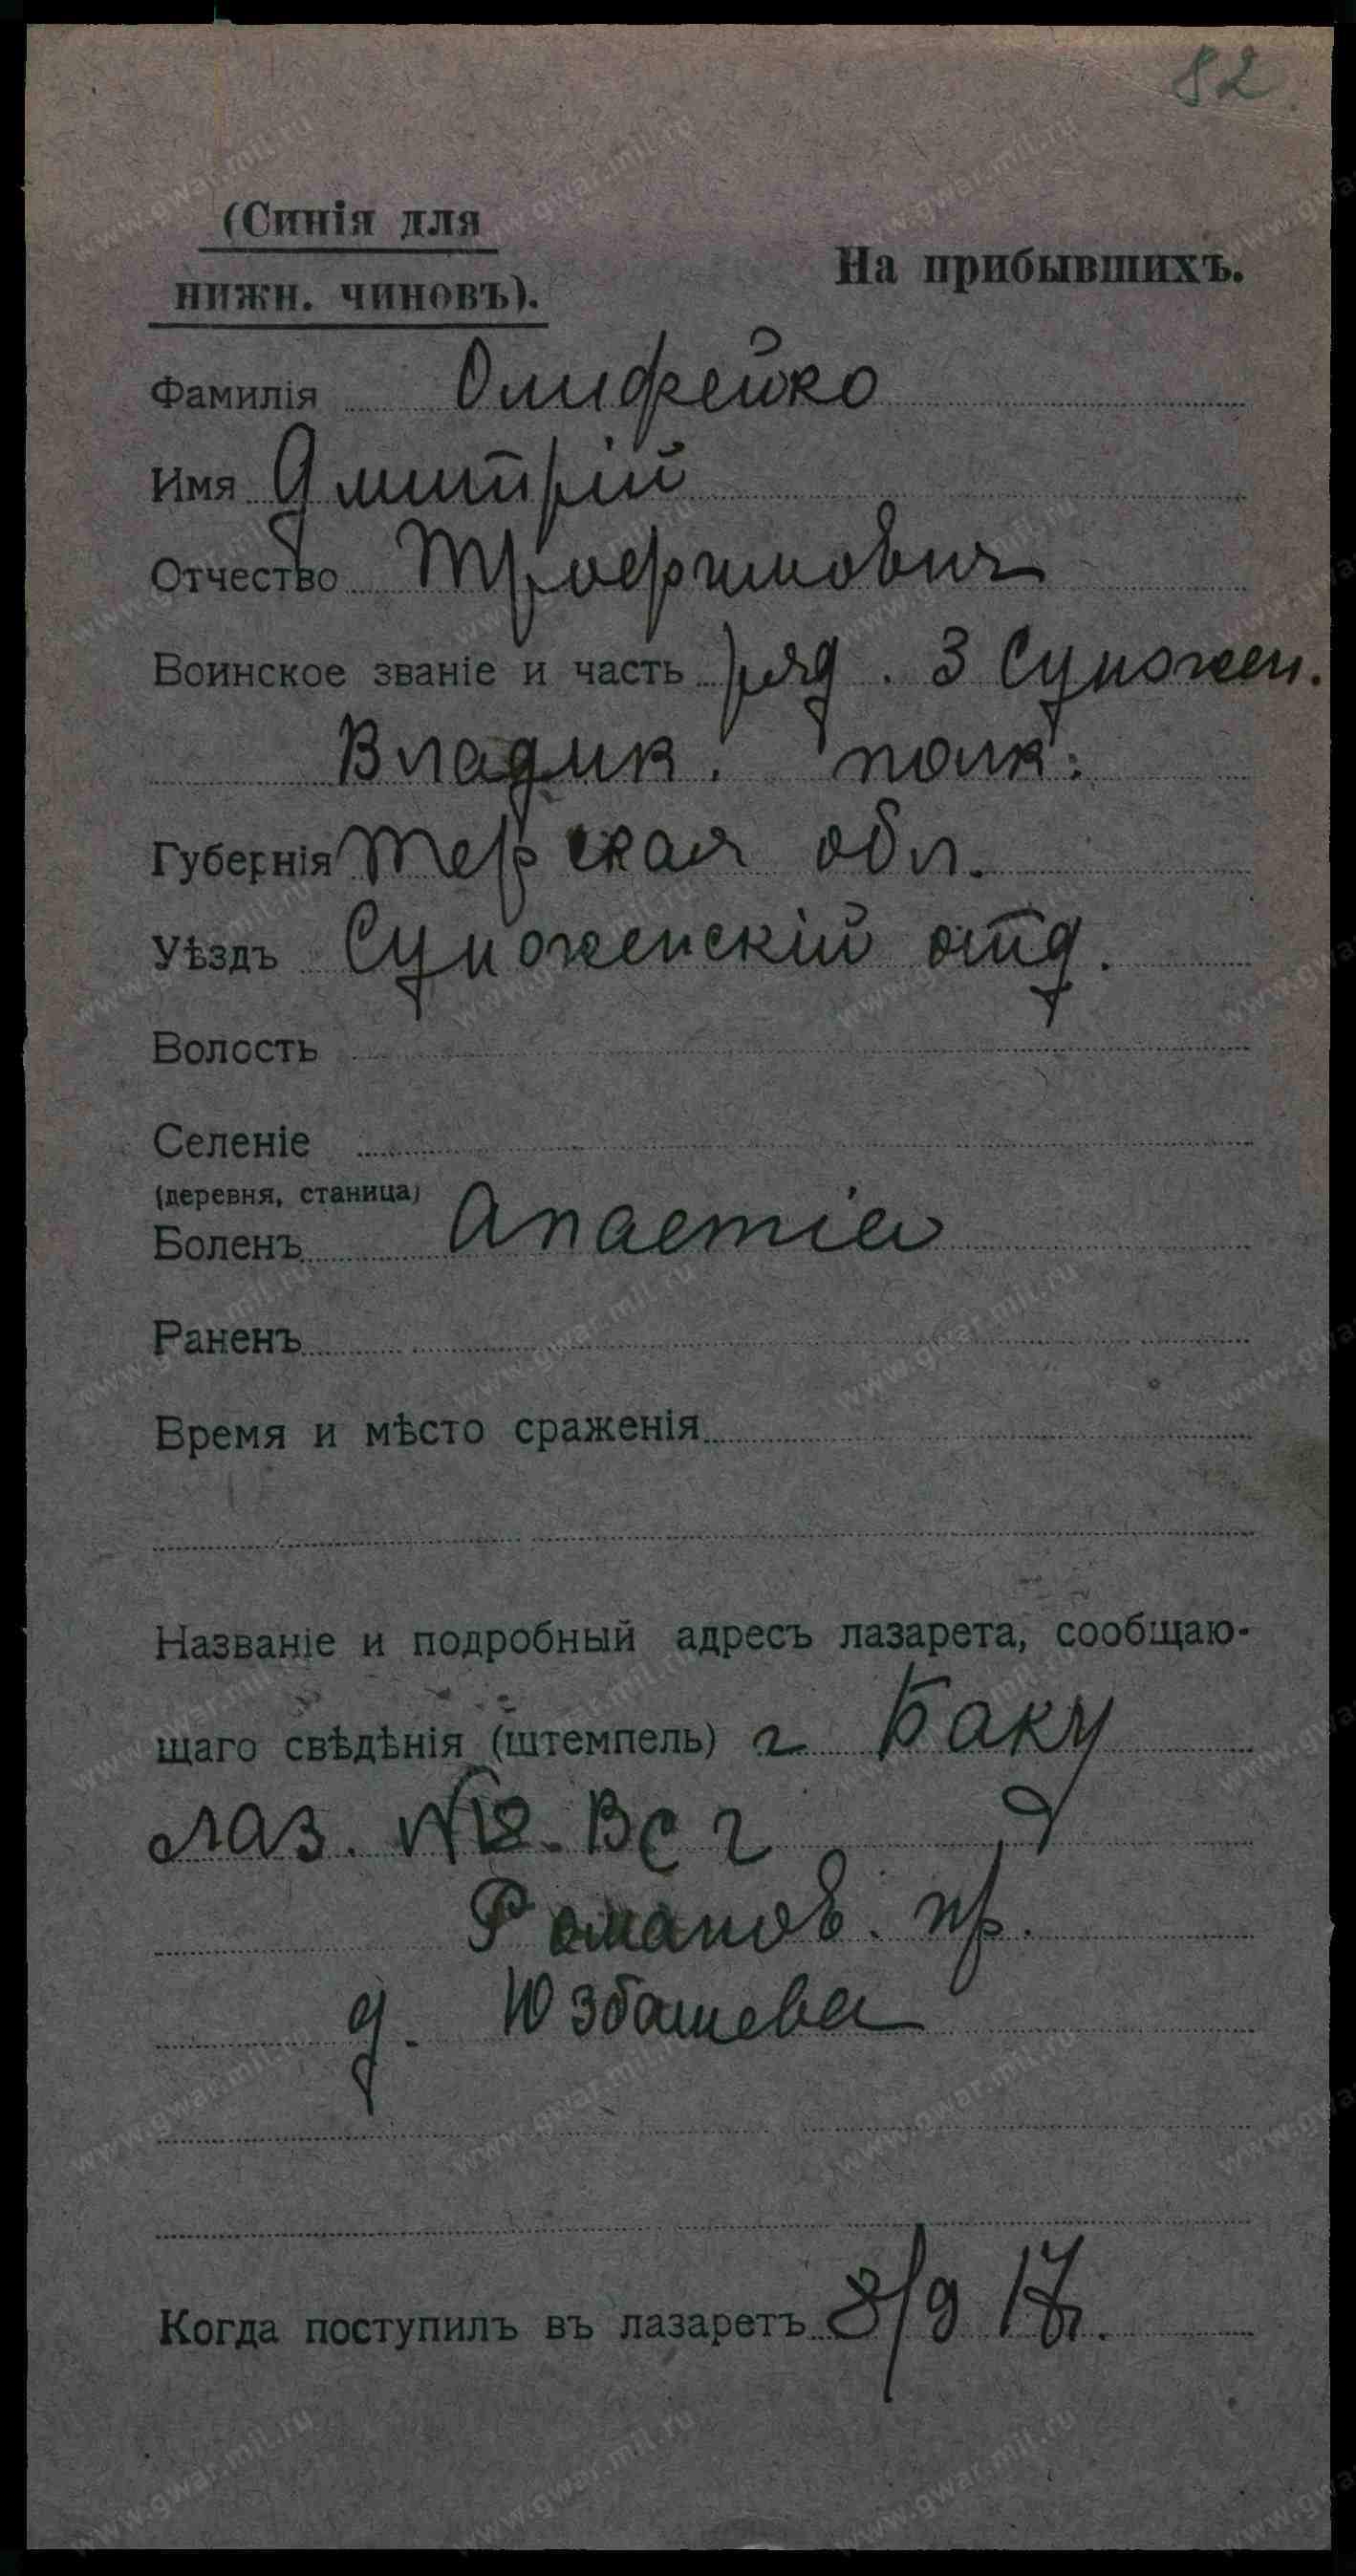 82
(Синія для
нижн. чиновъ).
На прибывшихъ.
Фамилія Олифейко
Имя Дмитрій
Отчество Трофимович
Воинское званіе и часть ряд. 3 Сунжен.
Владик. полк.
Губернія Терская обл.
Уѣздъ Сунженскій отд.
Волость
Селеніе
(деревня, станица)
Боленъ Anaemia
Раненъ
Время и мѣсто сраженія
Названіе и подробный адресъ лазарета, сообщаю-
щаго свѣдѣнія (штемпель) г Баку
лаз. №12 ВСГ
Романов. пр.
д. Юзбашева
Когда поступилъ въ лазаретъ 8/9 17г.
www.gwar.mil.ru